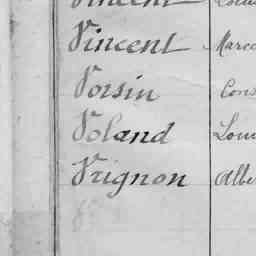 Vincent
Vincent Marce
Voisin Cons
Voland Loui
Vrignon Albe